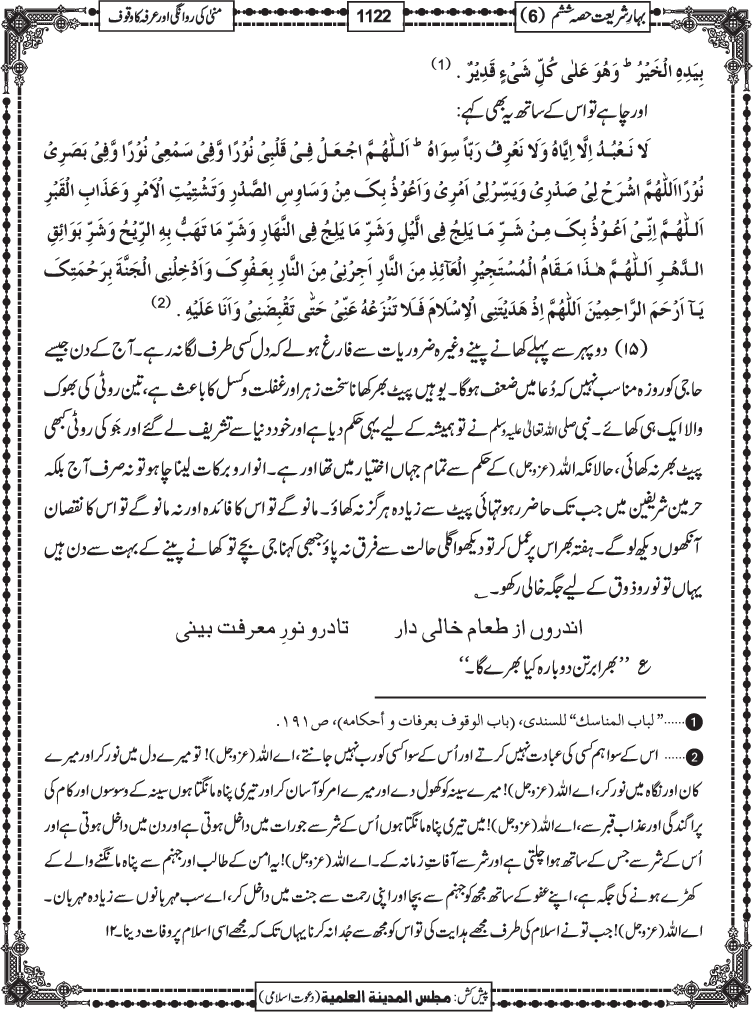 بہار شریعت حصہ ششم (6)
1122
منیٰ کی روانگی اور عرفہ کا وقوف
بِيَدِهِ الْخَيْرُ ؕ وَهُوَ عَلٰى كُلِّ شَىْءٍ قَدِيْرٌ . (1)
اور چاہے تو اس کے ساتھ یہ بھی کہے:
لَا نَعْبُدُ اِلَّا اِيَّاهُ وَلَا نَعْرِفُ رَبّاً سِوَاهُ ؕ اَللّٰهُمَّ اجْعَلْ فِىْ قَلْبِىْ نُوْرًا وَّفِىْ سَمْعِىْ نُوْرًا وَّفِىْ بَصَرِىْ
نُوْرًا اَللّٰهُمَّ اشْرَحْ لِىْ صَدْرِىْ وَيَسِّرْلِىْ اَمْرِىْ وَاَعُوْذُ بِكَ مِنْ وَسَاوِسِ الصَّدْرِ وَتَشْتِيْتِ الْاَمْرِ وَعَذَابِ الْقَبْرِ
اَللّٰهُمَّ اِنِّىْ اَعُوْذُ بِكَ مِنْ شَرِّ مَا يَلِجُ فِى الَّيْلِ وَشَرِّ مَا يَلِجُ فِى النَّهَارِ وَشَرِّ مَا تَهَبُّ بِهِ الرِّيْحُ وَشَرِّ بَوَائِقِ
الدَّهْرِ اَللّٰهُمَّ هٰذَا مَقَامُ الْمُسْتَجِيْرِ الْعَائِذِ مِنَ النَّارِ اَجِرْنِىْ مِنَ النَّارِ بِعَفْوِكَ وَاَدْخِلْنِى الْجَنَّةَ بِرَحْمَتِكَ
يَآ اَرْحَمَ الرَّاحِمِيْنَ اَللّٰهُمَّ اِذْ هَدَيْتَنِى الْاِسْلَامَ فَلَا تَنْزَعْهُ عَنِّىْ حَتّٰى تَقْبِضَنِىْ وَاَنَا عَلَيْهِ . (2)
(۱۵) دوپہر سے پہلے کھانے پینے وغیرہ ضروریات سے فارغ ہولے کہ دل کسی طرف لگا نہ رہے۔ آج کے دن جیسے
حاجی کو روزہ مناسب نہیں کہ دُعا میں ضعف ہوگا۔ یوہیں پیٹ بھر کھانا سخت زہر اور غفلت و کسل کا باعث ہے، تین روٹی کی بھوک
والا ایک ہی کھائے۔ نبی صلی اللہ تعالیٰ علیہ وسلم نے تو ہمیشہ کے لیے یہی حکم دیا ہے اور خود دنیا سے تشریف لے گئے اور جَو کی روٹی کبھی
پیٹ بھر نہ کھائی، حالانکہ اللہ (عزوجل) کے حکم سے تمام جہاں اختیار میں تھا اور ہے۔ انوار و برکات لینا چاہو تو نہ صرف آج بلکہ
حرمین شریفین میں جب تک حاضر رہو تہائی پیٹ سے زیادہ ہرگز نہ کھاؤ۔ مانو گے تو اس کا فائدہ اور نہ مانو گے تو اس کا نقصان
آنکھوں دیکھ لوگے۔ ہفتہ بھر اس پر عمل کر تو دیکھو اگلی حالت سے فرق نہ پاؤ جبھی کہنا جی بچے تو کھانے پینے کے بہت سے دن ہیں
یہاں تو نور و ذوق کے لیے جگہ خالی رکھو۔ ؎
اندروں از طعام خالی دار تا درو نورِ معرفت بینی
ع ’’بھرا برتن دوبارہ کیا بھرے گا۔‘‘
1......”لباب المناسك“ للسندی، (باب الوقوف بعرفات و أحكامه)، ص۱۹۱.
2...... اس کے سوا ہم کسی کی عبادت نہیں کرتے اور اُس کے سوا کسی کو رب نہیں جانتے، اے اللہ (عزوجل)! تو میرے دل میں نور کر اور میرے
کان اور نگاہ میں نور کر، اے اللہ (عزوجل)! میرے سینہ کو کھول دے اور میرے امر کو آسان کر اور تیری پناہ مانگتا ہوں سینہ کے وسوسوں اور کام کی
پراگندگی اور عذاب قبر سے، اے اللہ (عزوجل)! میں تیری پناہ مانگتا ہوں اُس کے شر سے جو رات میں داخل ہوتی ہے اور دن میں داخل ہوتی ہے اور
اُس کے شر سے جس کے ساتھ ہوا چلتی ہے اور شر سے آفاتِ زمانہ کے۔ اے اللہ (عزوجل)! یہ امن کے طالب اور جہنم سے پناہ مانگنے والے کے
کھڑے ہونے کی جگہ ہے، اپنے عفو کے ساتھ مجھ کو جہنم سے بچا اور اپنی رحمت سے جنت میں داخل کر، اے سب مہربانوں سے زیادہ مہربان۔
اے اللہ (عزوجل)! جب تو نے اسلام کی طرف مجھے ہدایت کی تو اس کو مجھ سے جُدا نہ کرنا یہاں تک کہ مجھے اسی اسلام پر وفات دینا۔ ۱۲
پیش کش: مجلس المدینة العلمیة (دعوت اسلامی)